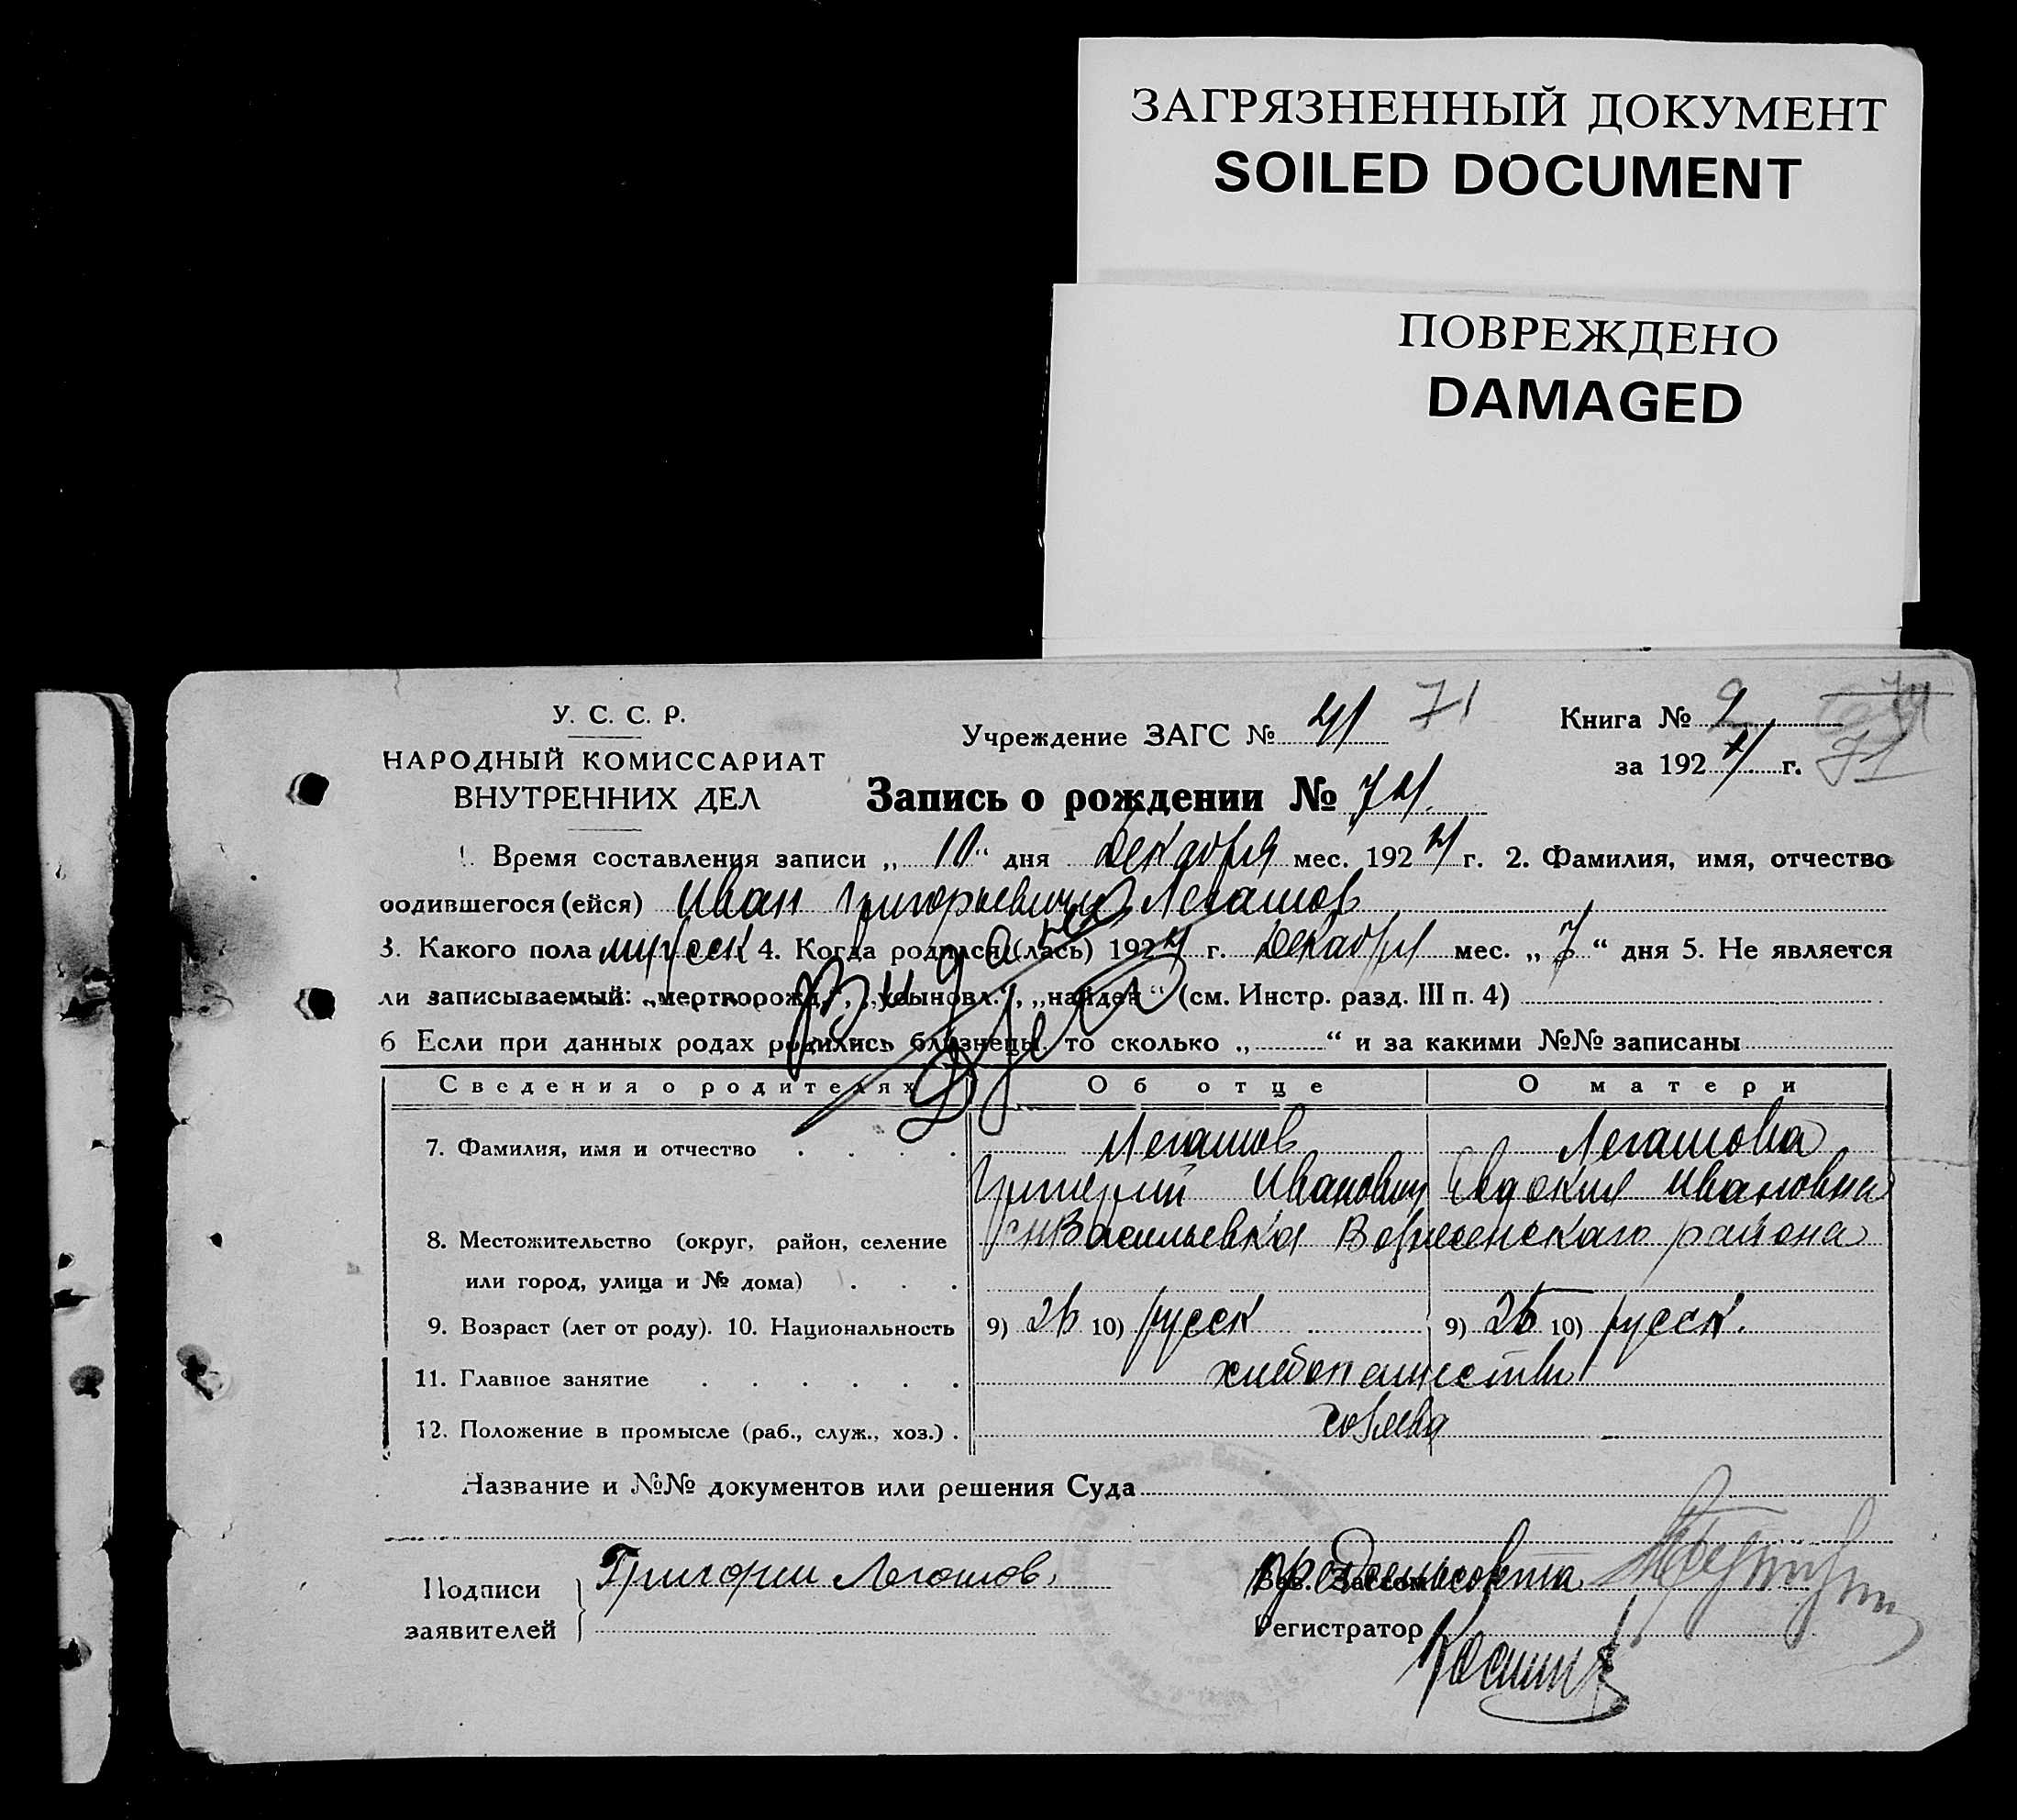 ЗАГРЯЗНЕННЫЙ ДОКУМЕНТ
SOILED DOCUMENT
ПОВРЕЖДЕНО
DAMAGED
У. С. С. Р.
НАРОДНЫЙ КОМИССАРИАТ
ВНУТРЕННИХ ДЕЛ
Учреждение ЗАГС № 71
Книга № 2
за 192 г. 71
Запись о рождении №
1. Время составления записи „ 10 “ дня Декабря мес. 192 г. 2. Фамилия, имя, отчество
родившегося (ейся) Иван Григорьевич Легашов
3. Какого пола мужск 4. Когда родился (лась) 192 г. Декабря мес. „ 7 “ дня 5. Не является
ли записываемый: „мертворожд.“, „усыновл.“, „найден“ (см. Инстр. разд. III п. 4)
6 Если при данных родах родились близнецы, то сколько „ “ и за какими №№ записаны
Сведения о родителях Об отце О матери
7. Фамилия, имя и отчество Легашов Легашова
Григорий Иванович Евдокия Ивановна
8. Местожительство (округ, район, селение Васильевка Вознесенскаго района
или город, улица и № дома)
9. Возраст (лет от роду). 10. Национальность 9) 26 10) русск 9) 25 10) русск.
11. Главное занятие хлебопашество
12. Положение в промысле (раб., служ., хоз.) хозяева
Название и №№ документов или решения Суда
Подписи
заявителей
Григории Легошов.
Зав. Загсом
Регистратор